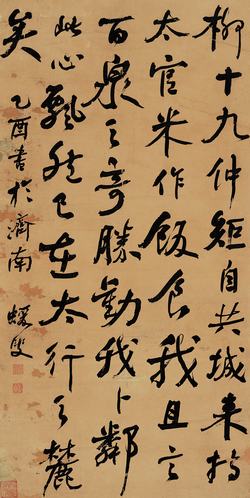 柳十九仲矩自共城来持
太官米作飯食我且言
百泉之奇勝勸我卜鄰
此心飄然已在太行之麓
矣
乙酉書於濟南 蝯叟